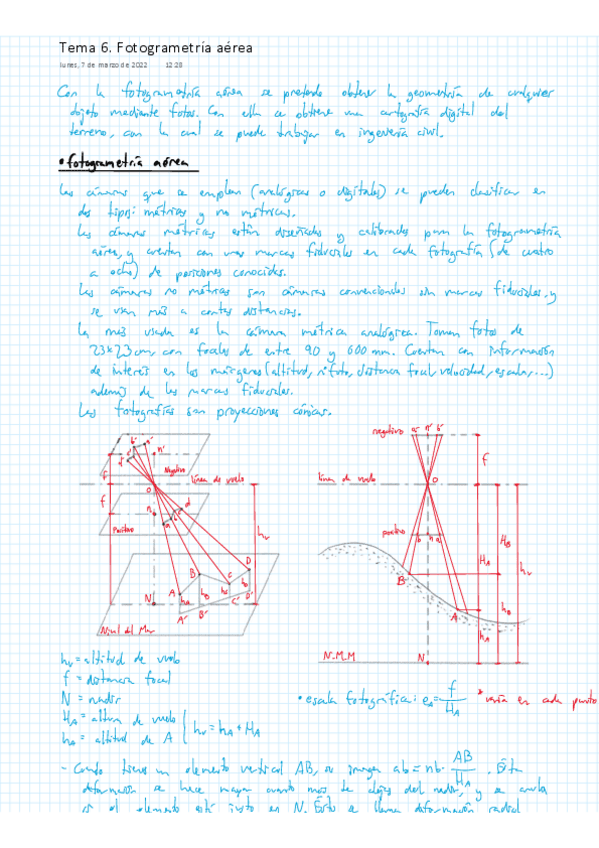 Tema 6. Fotogrametría aérea
lunes, 7 de marzo de 2022 12:28
Con la fotogrametría aérea se pretende obtener la geometría de cualquier
objeto mediante fotos. Con ella se obtiene una cartografía digital del
terreno, con la cual se puede trabajar en ingeniería civil.
• fotogrametría aérea
Las cámaras que se emplean (analógicas o digitales) se pueden clasificar en
dos tipos: métricas y no métricas.
Las cámaras métricas están diseñadas y calibradas para la fotogrametría
aérea, y cuentan con unas marcas fiduciales en cada fotografía (de cuatro
a ocho) de posiciones conocidas.
Las cámaras no métricas son cámaras convencionales sin marcas fiduciales, y
se usan más a cortas distancias.
La más usada es la cámara métrica analógica. Toman fotos de
23x23cm, con focales de entre 90 y 600 mm. Cuentan con información
de interés en los márgenes (altitud, nº foto, distancia focal, velocidad, escala, ...)
además de las marcas fiduciales.
Las fotografías son proyecciones cónicas.
b' a' n' d'
Negativo
f
O
línea de vuelo
f
n
a b c d
Positivo
hv
A B C D
hA hB hC hD
A' B' C' D'
N
Nivel del Mar
negativo a' n' b'
f
línea de vuelo O
positivo b n a
HA HB hv
B A
hB hA
N.M.M N
hv = altitud de vuelo
f = distancia focal
N = nadir
HA = altura de vuelo
hA = altitud de A
hv = hA + HA
• escala fotográfica: eA = f/HA * varía en cada punto
- Cuando tienes un elemento vertical AB, su imagen ab = nb · AB/HA. Esta
deformación se hace mayor cuanto más te alejes del nadir, y se anula
si el elemento está justo en N. Esto se llama deformación radial